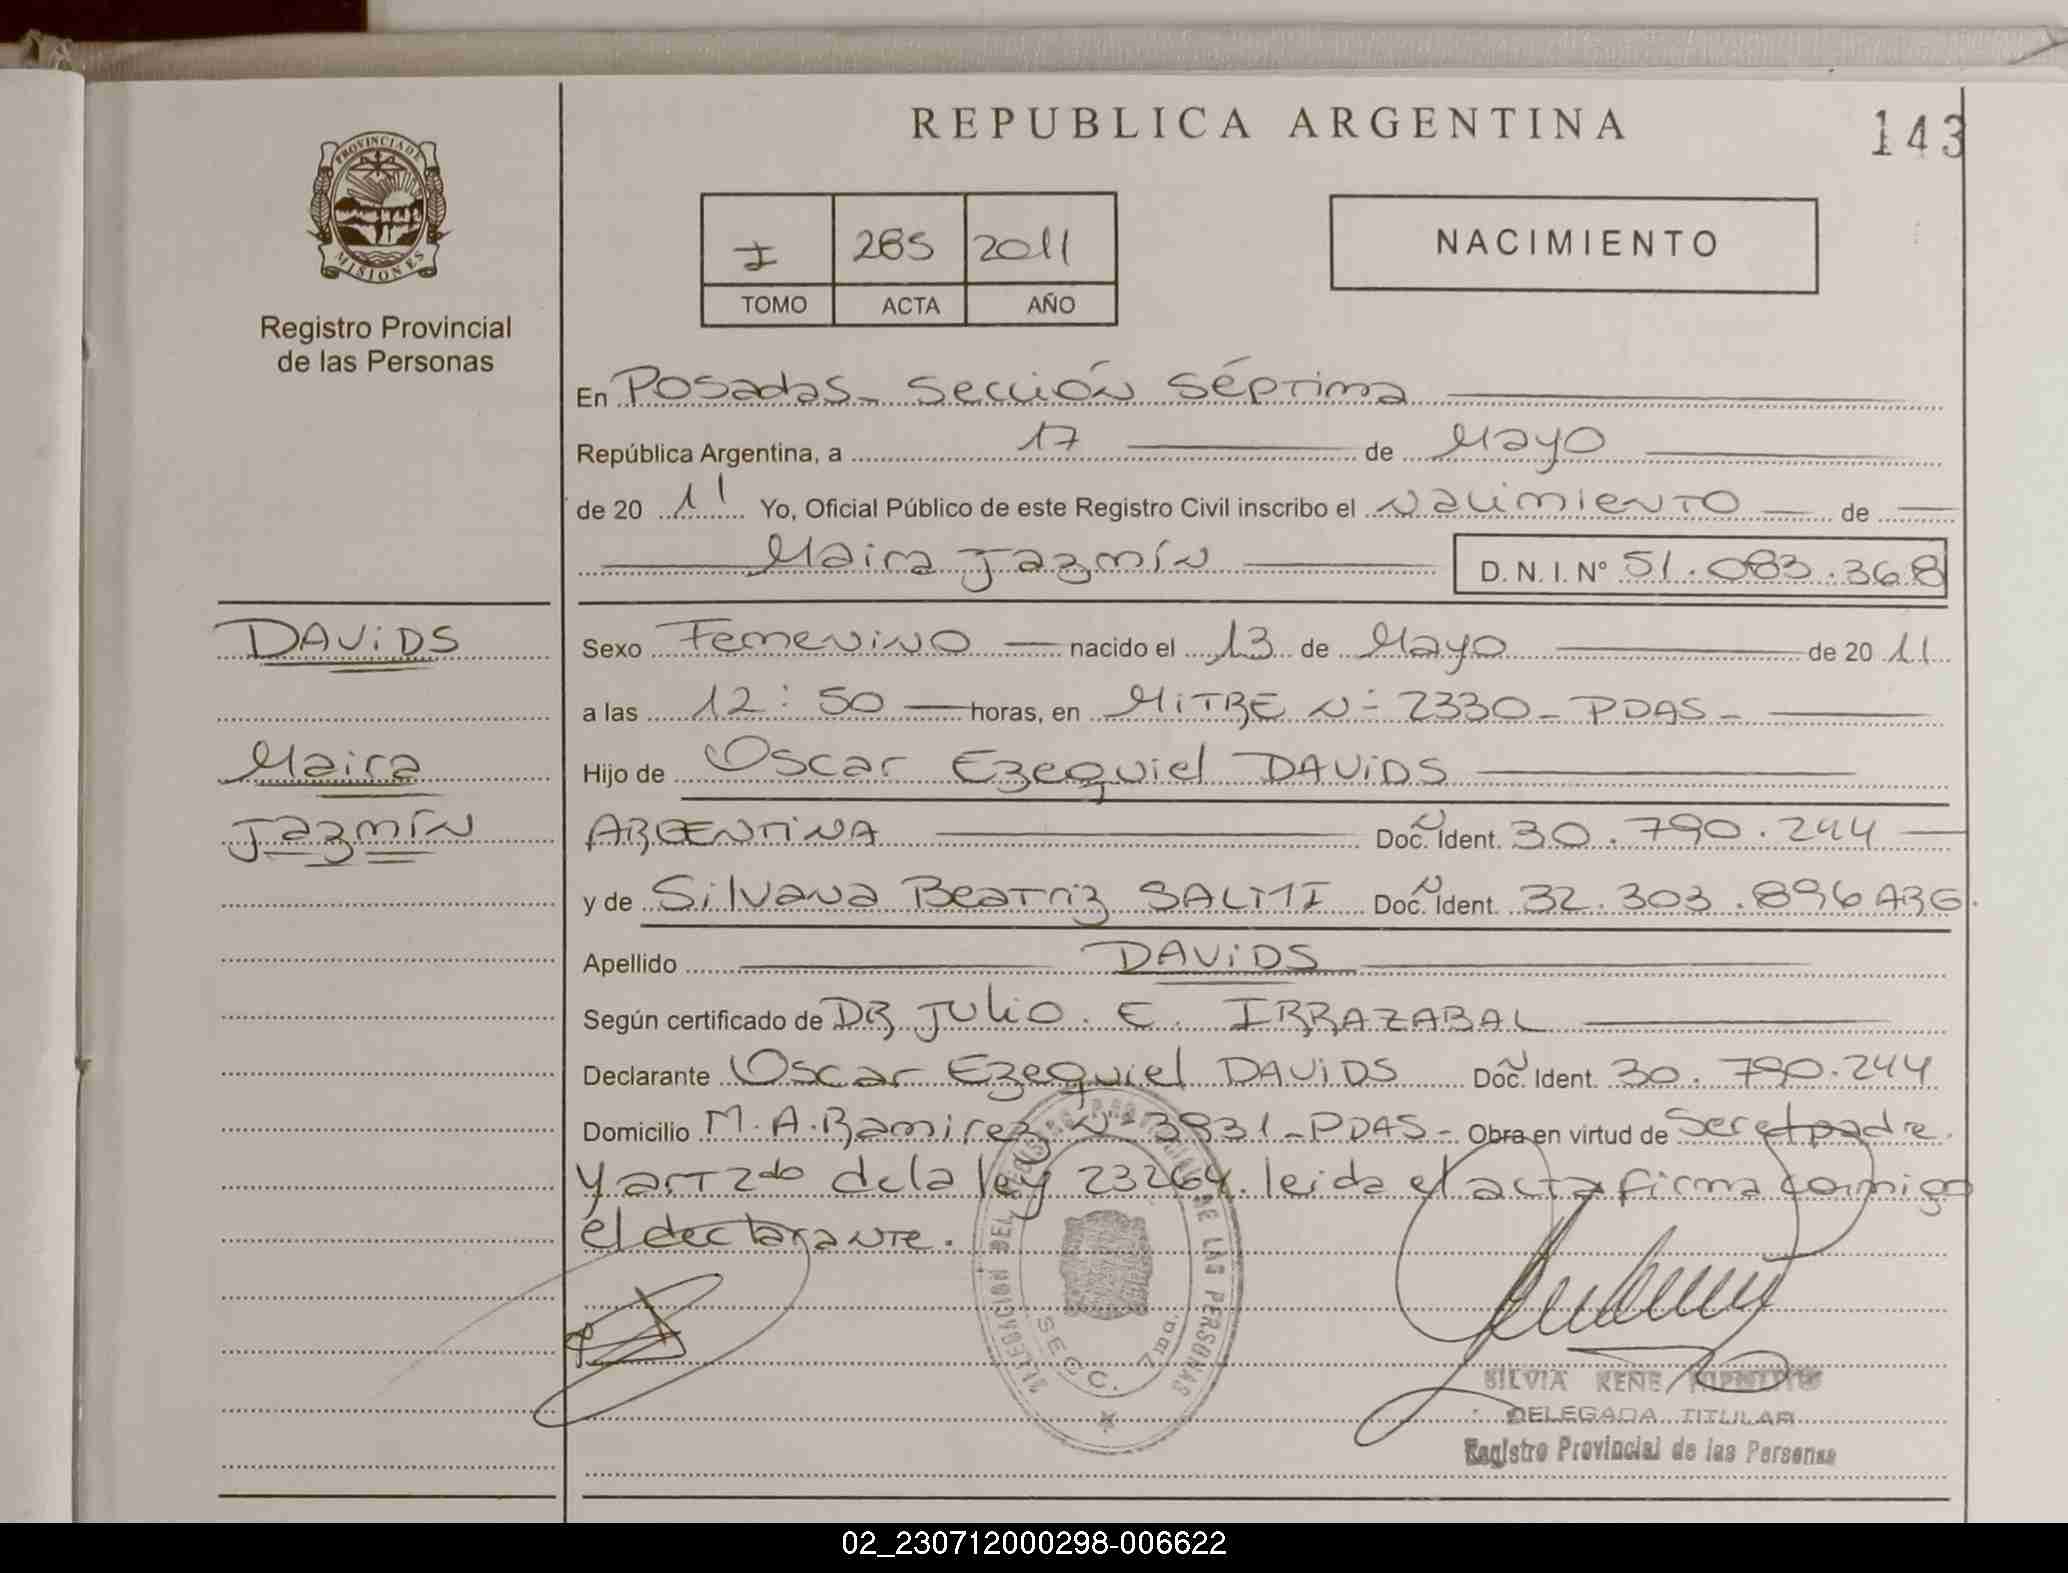 REPUBLICA ARGENTINA
143
PROVINCIA DE
MISIONES
Registro Provincial
de las Personas
I 285 2011
TOMO ACTA AÑO
NACIMIENTO
En Posadas - Sección Séptima
República Argentina, a 17 de Mayo
de 20 11 Yo, Oficial Público de este Registro Civil inscribo el Nacimiento de
Maira Jazmín D. N. I. Nº 51.083.368
DAViDS
Maira
Jazmín
Sexo Femenino nacido el 13 de Mayo de 20 11
a las 12:50 horas, en MiTRE Nº 2330 - PDAS -
Hijo de Oscar Ezequiel DAViDS
ARGENTiNA Doc. Ident. 30.790.244
y de Silvana Beatriz Doc. Ident. 32.303.896 ARG.
Apellido DAViDS
Según certificado de DR Julio. E. IRRAZABAL
Declarante Oscar Ezequiel DAViDS Doc. Ident. 30.790.244
Domicilio M. A. Ramirez Nº 3931 - PDAS - Obra en virtud de Ser el padre
y art 2do de la ley 23264. leida el acta firma conmigo
el declarante.
DELEGACION DEL REGISTRO PROVINCIAL DE LAS PERSONAS
SECC. 7ma.
SILVIA RENE
DELEGADA TITULAR
Registro Provincial de las Personas
02_230712000298-006622